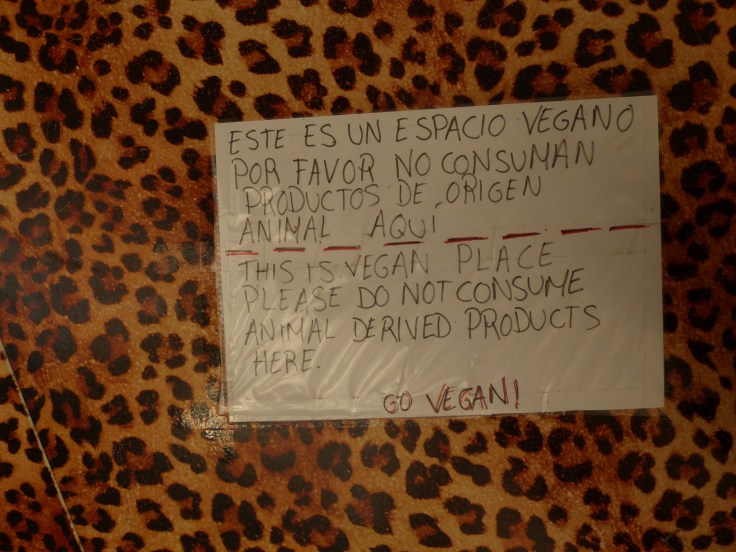 ESTE ES UN ESPACIO VEGANO
POR FAVOR NO CONSUMAN
PRODUCTOS DE ORIGEN
ANIMAL AQUÍ
THIS IS VEGAN PLACE
PLEASE DO NOT CONSUME
ANIMAL DERIVED PRODUCTS
HERE.
GO VEGAN!